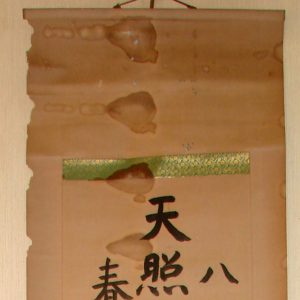 八
天照
春